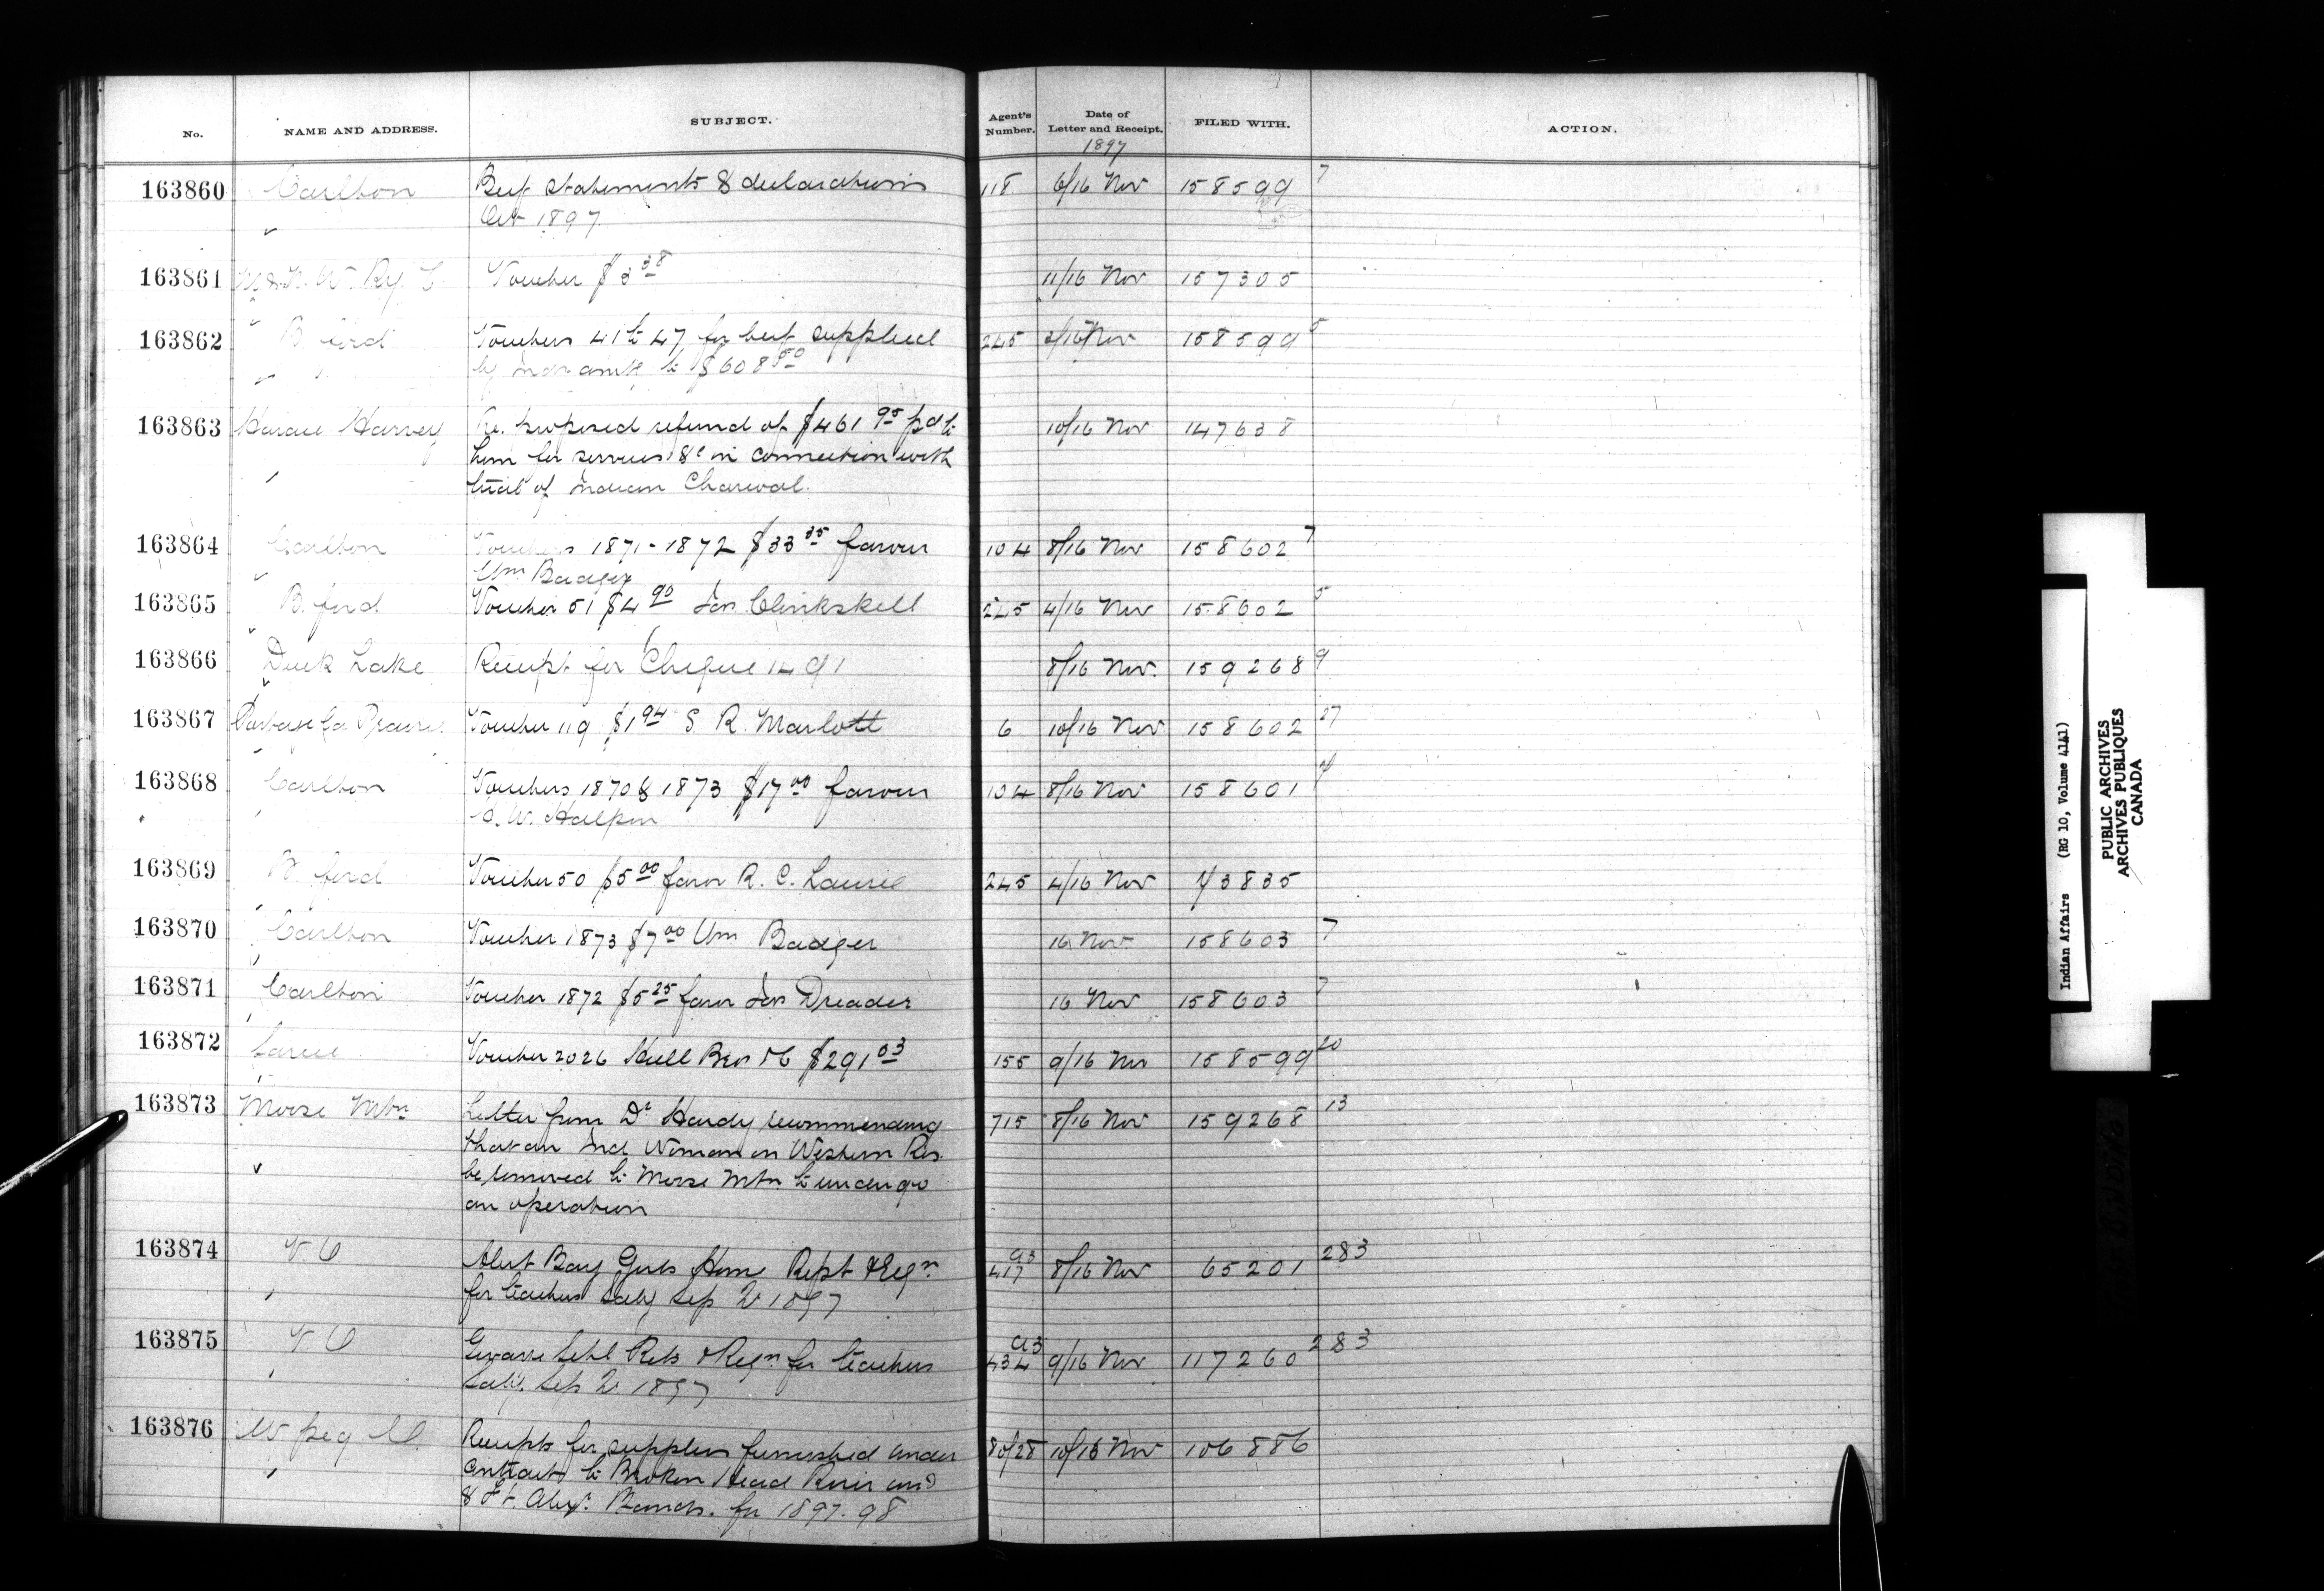 No. NAME AND ADDRESS. SUBJECT. Agent's Number. Date of Letter and Receipt. FILED WITH. ACTION.
1897
163860 Carlton Beef statements & declarations 118 6/16 Nov 158599 7
Oct 1897
163861 M & N. W. Ry. C Voucher $3 38 11/16 Nov 157305
163862 B. ford Vouchers 41 to 47 for beef supplied 245 /16 Nov 158599 5
by Indn amtg to $608 50
163863 Horace Harvey Re. proposed refund of $461 95 pd to 10/16 Nov 147638
him for services &c in connection with
trial of Indian Charcoal.
163864 Carlton Vouchers 1871-1872 $33 35 favour 104 8/16 Nov 158602 7
Wm Badger
163865 B. ford Voucher 51 $4 90 Jas Clinkskell 245 4/16 Nov 158602 5
163866 Duck Lake Receipt for Cheque 1491 8/16 Nov. 159268 9
163867 Portage la Prairie Voucher 119 $1 94 S. R. Marlatt 6 10/16 Nov 158602 27
163868 Carlton Vouchers 1870 & 1873 $17 00 favour 104 8/16 Nov 158601
W. Halpin
163869 B. ford Voucher 50 $5 00 favor R. C. Laurie 245 4/16 Nov 3835
163870 Carlton Voucher 1873 $7 00 Wm Badger 16 Nov 158603 7
163871 Carlton Voucher 1872 $5 25 favor Jas Dreader 16 Nov 158603 7
163872 Sarcee Voucher 2026 Hull Bros & C $291 03 155 9/16 Nov 158599 20
163873 Moose Mtn Letter from Dr Hardy recommending 715 8/16 Nov 159268 13
that an Ind Woman on Western Res.
be removed to Moose Mtn. to undergo
an operation
163874 V. O Alert Bay Girls Home Rept & Reqn 93 417 8/16 Nov 65201 283
for teachers saly Sep Qr 1897
163875 V. O Schl Rets & Reqn for teachers 93 434 9/16 Nov 117260 283
saly. Sep Qr 1897
163876 W peg Receipts for supplies furnished under 80/28 10/16 Nov 106886
contract to Broken Head River and
& Ft. Alex. Bands. for 1897-98
Indian Affairs (RG 10, Volume 4141)
PUBLIC ARCHIVES
ARCHIVES PUBLIQUES
CANADA